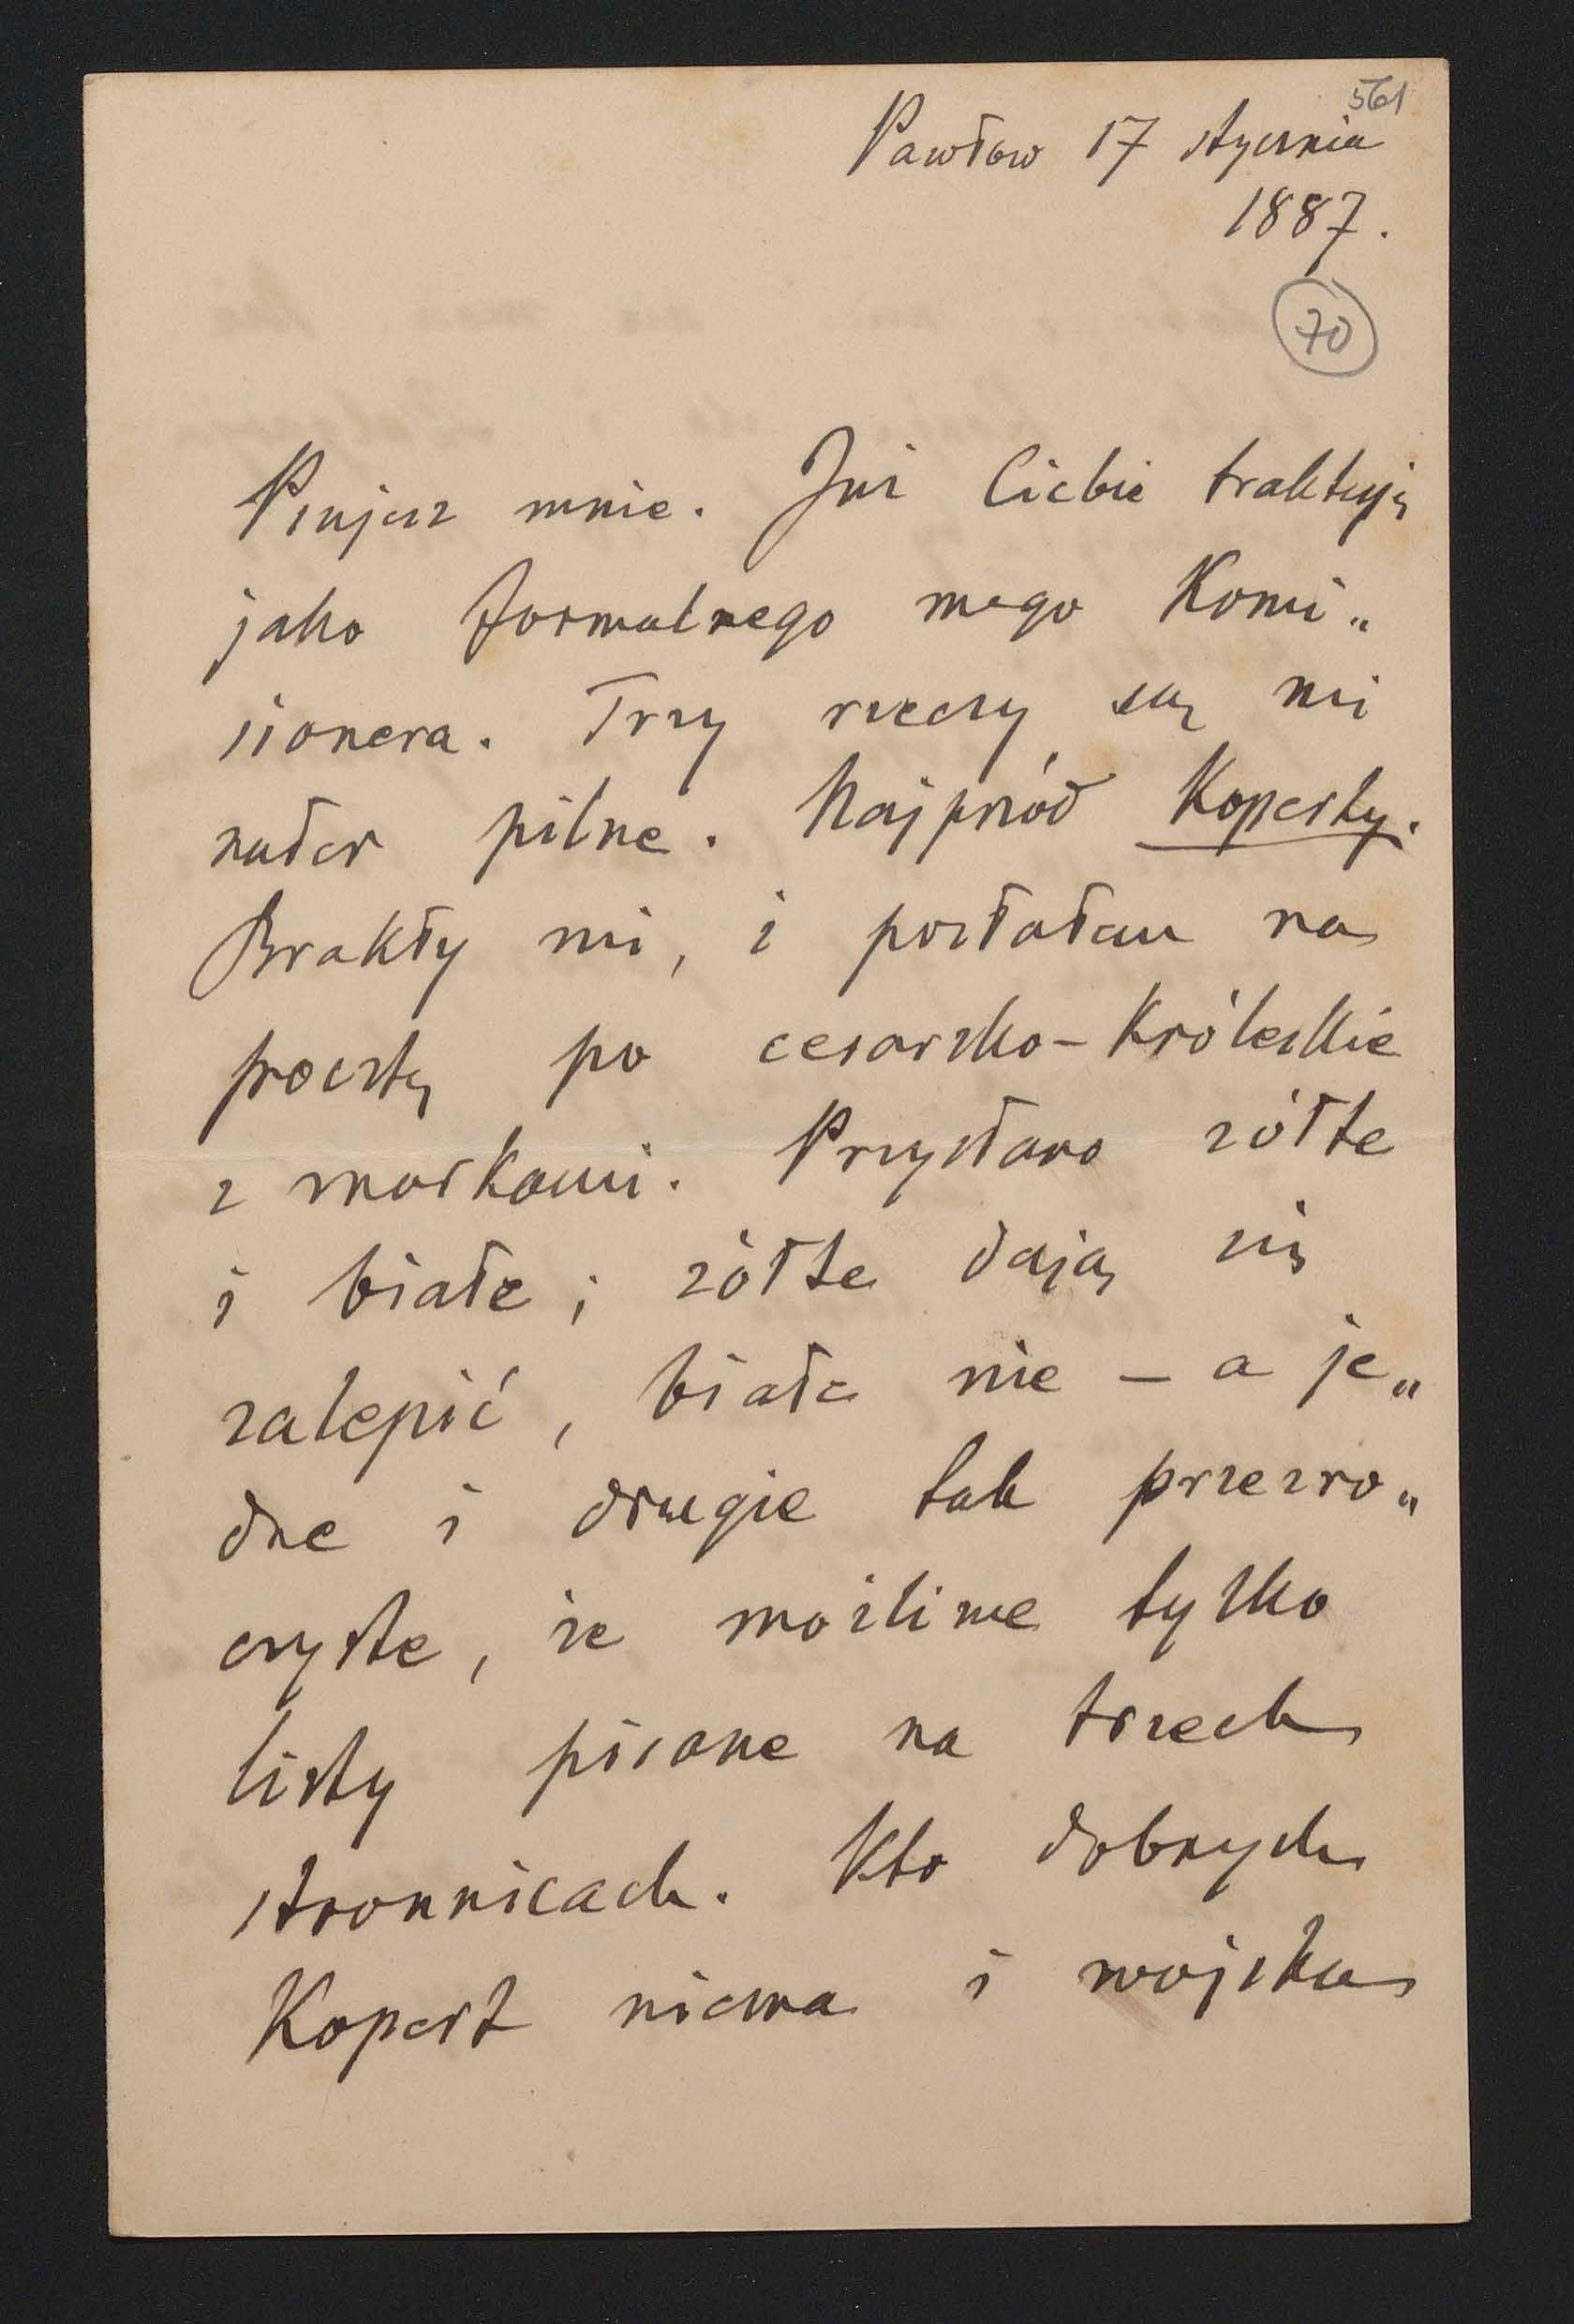 561
Pawłow 17 stycznia
1887.
70
Psujesz mnie. Już Ciebie traktuję
jako formalnego mego Komi„
sionera. Trzy rzeczy są mi
nader pilne. Najprzód Koperty.
Brakły mi, i posłałam na
pocztę po cesarsko-Królewskie
z markami. Przysłano żółte
i białe; żółte dają się
zalepić, białe nie – a je„
dne i drugie tak przezro„
czyste, że możliwe tylko
listy pisane na trzech
stronnicach. Kto dobrych
Kopert niema i wojska